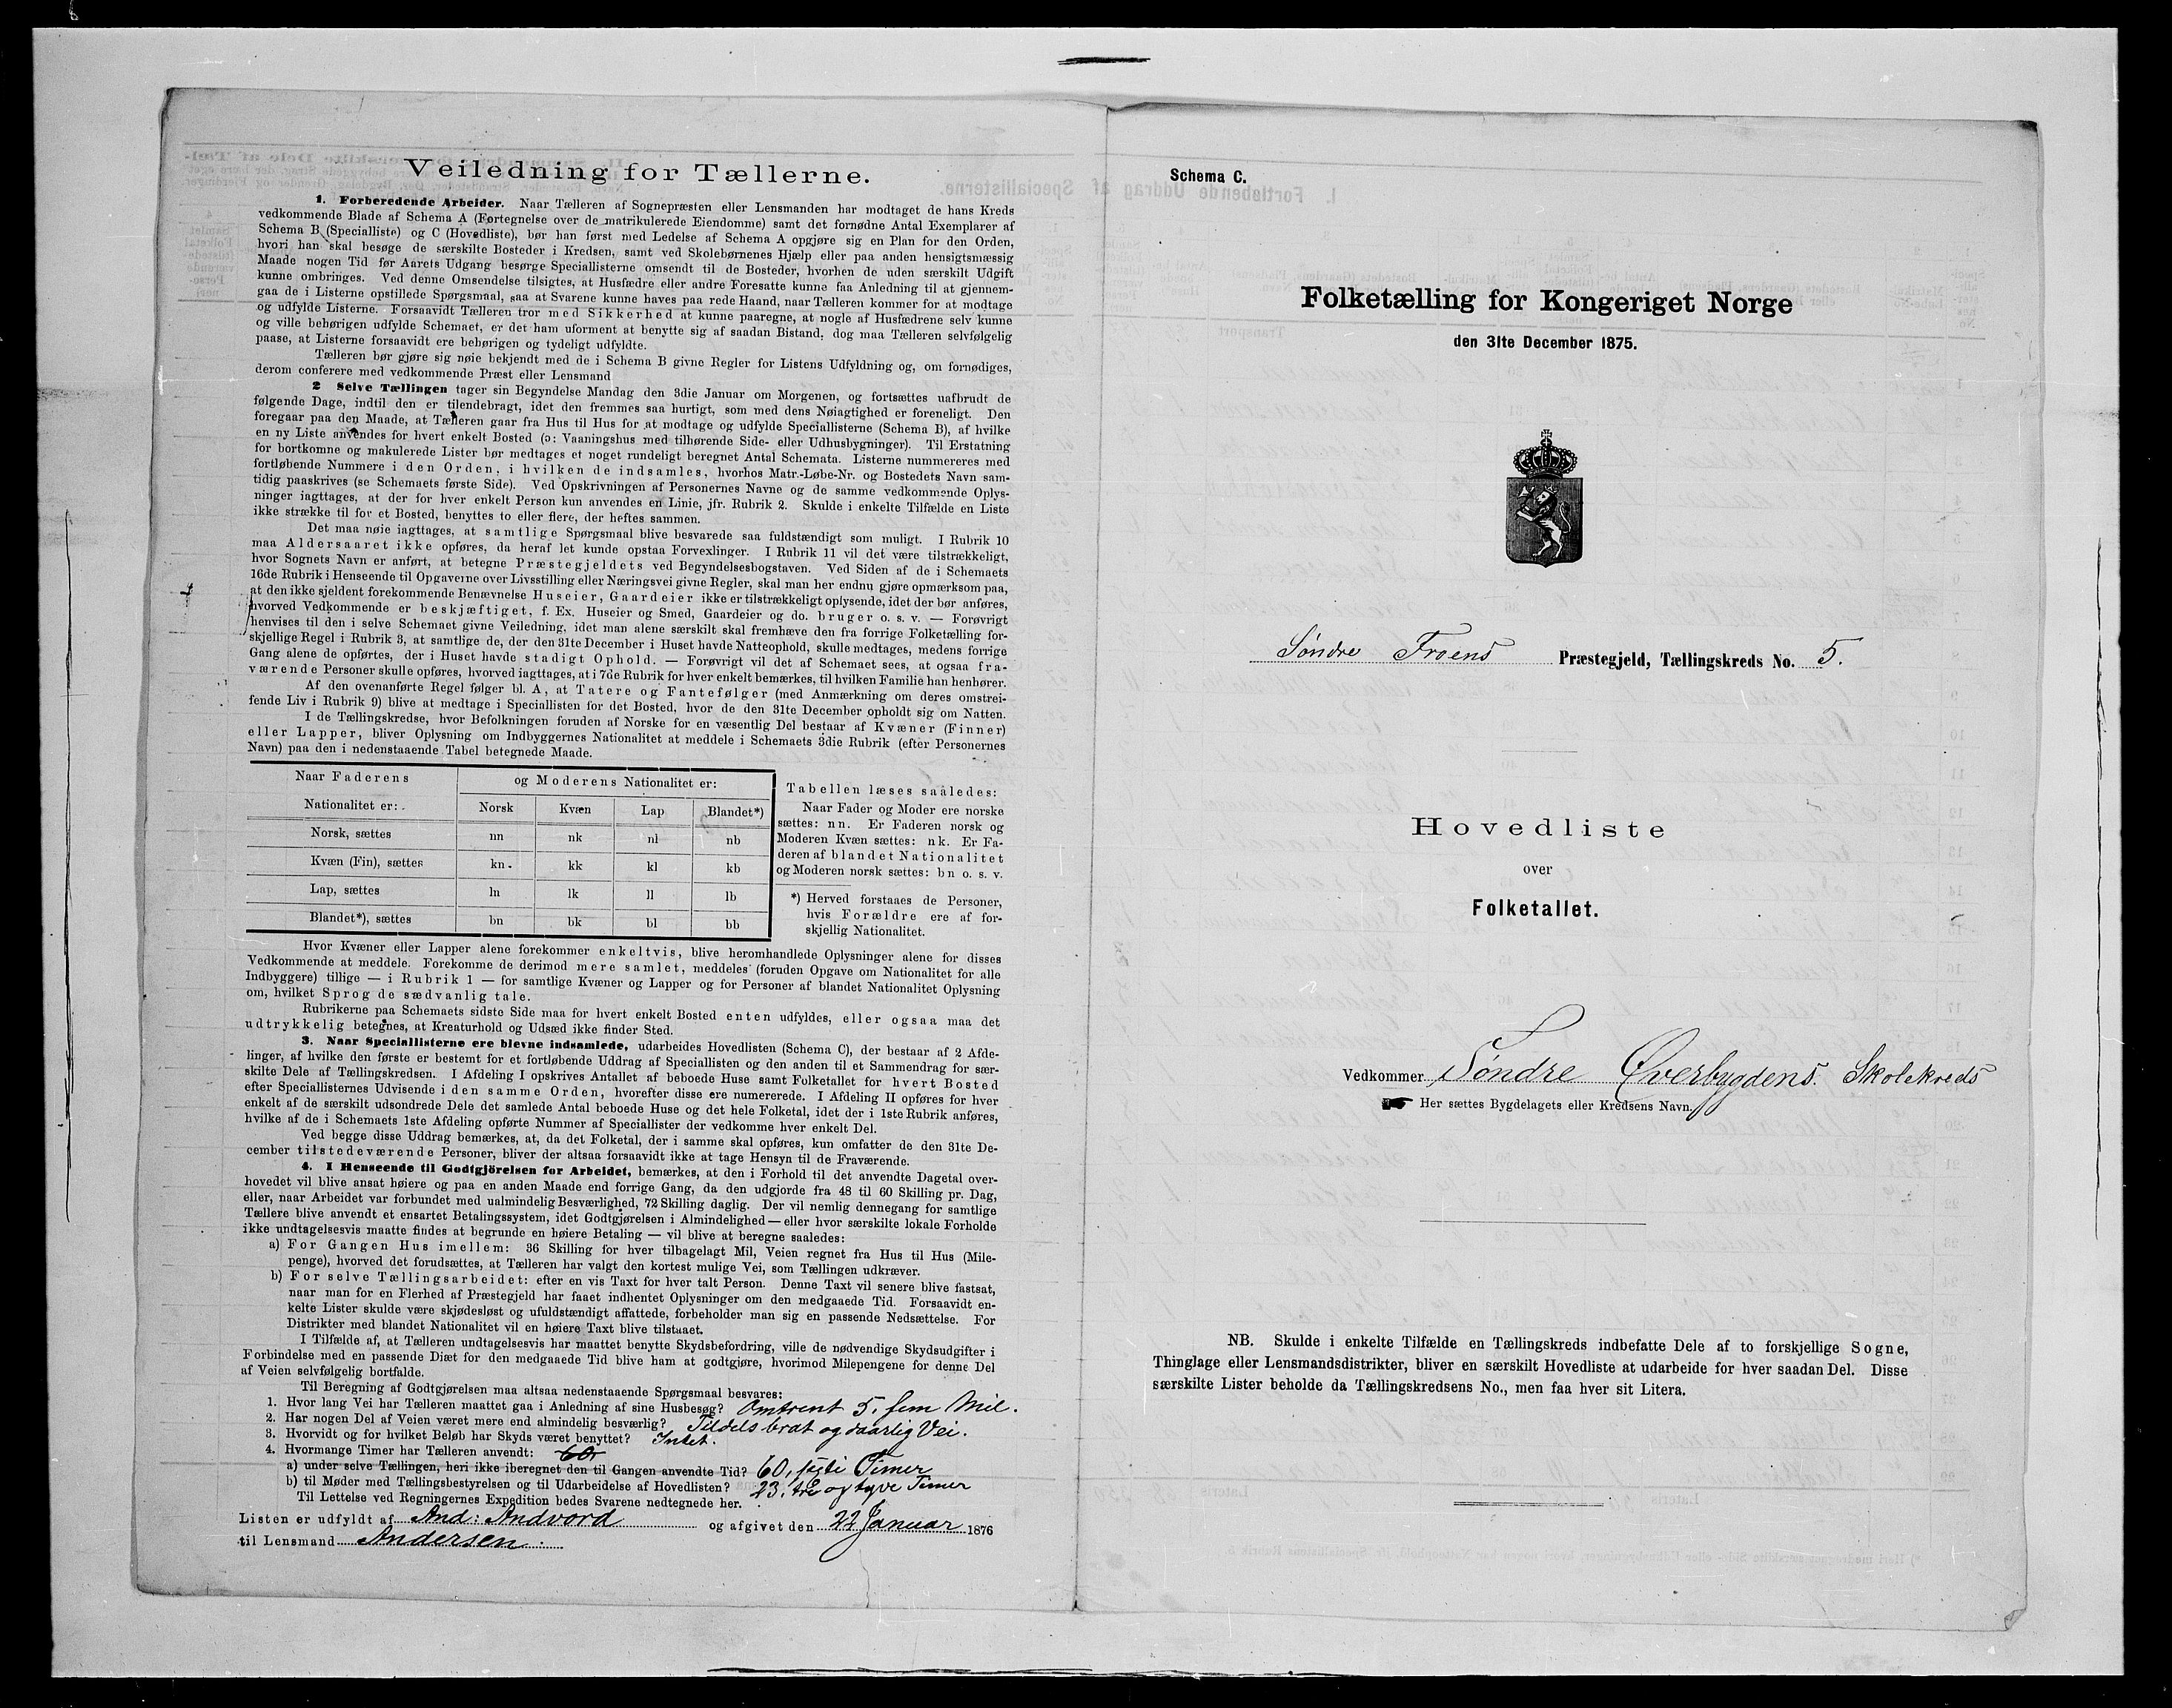 Veiledning for Tællerne.
1. Forberedende Arbeider. Naar Tælleren af Sognepræsten eller Lensmanden har modtaget de hans Kreds
vedkommende Blade af Schema A (Fortegnelse over de matrikulerede Eiendomme) samt det fornødne Antal Exemplarer af
Schema B (Specialliste) og C (Hovedliste), bør han først med Ledelse af Schema A opgjøre sig en Plan for den Orden,
hvori han skal besøge de særskilte Bosteder i Kredsen, samt ved Skolebørnenes Hjælp eller paa anden hensigtsmæssig
Maade nogen Tid før Aarets Udgang besørge Speciallisterne omsendt til de Bosteder, hvorhen de uden særskilt Udgift
kunne ombringes. Ved denne Omsendelse tilsigtes, at Husfædre eller andre Foresatte kunne faa Anledning til at gjennem-
gaa de i Listerne opstillede Spørgsmaal, saa at Svarene kunne haves paa rede Haand, naar Tælleren kommer for at modtage
og udfylde Listerne. Forsaavidt Tælleren tror med Sikkerhed at kunne paaregne, at nogle af Husfædrene selv kunne
og ville behørigen udfylde Schemaet, er det ham uforment at benytte sig af saadan Bistand, dog maa Tælleren selvfølgelig
paase, at Listerne forsaavidt ere behørigen og tydeligt udfyldte.
Tælleren bør gjøre sig nøie bekjendt med de i Schema B givne Regler for Listens Udfyldning og, om fornødiges,
derom conferere med vedkommende Præst eller Lensmand
2 Selve Tællingen tager sin Begyndelse Mandag den 3die Januar om Morgenen, og fortsættes uafbrudt de
følgende Dage, indtil den er tilendebragt, idet den fremmes saa hurtigt, som med dens Nøiagtighed er foreneligt. Den
foregaar paa den Maade, at Tælleren gaar fra Hus til Hus for at modtage og udfylde Speciallisterne (Schema B), af hvilke
en ny Liste anvendes for hvert enkelt Bosted (ɔ: Vaaningshus med tilhørende Side- eller Udhusbygninger). Til Erstatning
for bortkomne og makulerede Lister bør medtages et noget rundeligt beregnet Antal Schemata. Listerne nummereres med
fortløbende Nummere i den Orden, i hvilken de indsamles, hvorhos Matr.-Løbe-Nr. og Bostedets Navn sam-
tidig paaskrives (se Schemaets første Side). Ved Opskrivningen af Personernes Navne og de samme vedkommende Oplys-
ninger iagttages, at der for hver enkelt Person kun anvendes en Linie, jfr. Rubrik 2. Skulde i enkelte Tilfælde en Liste
ikke strække til for et Bosted, benyttes to eller flere, der heftes sammen.
Det maa nøie iagttages, at samtlige Spørgsmaal blive besvarede saa fuldstændigt som muligt. I Rubrik 10
maa Aldersaaret ikke opføres, da heraf let kunde opstaa Forvexlinger. I Rubrik 11 vil det være tilstrækkeligt,
hvor Sognets Navn er anført, at betegne Præstegjeldets ved Begyndelsesbogstaven. Ved Siden af de i Schemaets
16de Rubrik i Henseende til Opgaverne over Livsstilling eller Næringsvei givne Regler, skal man her endnu gjøre opmærksom paa,
at den ikke sjeldent forekommende Benævnelse Huseier, Gaardeier ikke er tilstrækkeligt oplysende, idet der bør anføres,
hvorved Vedkommende er beskjæftiget, f. Ex. Huseier og Smed, Gaardeier og do. bruger o. s. v. — Forøvrigt
henvises til den i selve Schemaet givne Veiledning, idet man alene særskilt skal fremhæve den fra forrige Folketælling for-
skjellige Regel i Rubrik 3, at samtlige de, der den 31te December i Huset havde Natteophold, skulle medtages, medens forrige
Gang alene de opførtes, der i Huset havde stadigt Ophold. — Forøvrigt vil det af Schemaet sees, at ogsaa fra-
værende Personer skulle opføres, hvorved iagttages, at i 7de Rubrik for hver enkelt bemærkes, til hvilken Familie han henhører.
Af den ovenanførte Regel følger bl. A, at Tatere og Fantefølger (med Anmærkning om deres omstrei-
fende Liv i Rubrik 9) blive at medtage i Speciallisten for det Bosted, hvor de den 31te December opholdt sig om Natten.
I de Tællingskredse, hvor Befolkningen foruden af Norske for en væsentlig Del bestaar af Kvæner (Finner)
eller Lapper, bliver Oplysning om Indbyggernes Nationalitet at meddele i Schemaets 3die Rubrik (efter Personernes
Navn) paa den i nedenstaaende Tabel betegnede Maade.
Naar Faderens Nationalitet er: og Moderens Nationalitet er:
Norsk Kvæn Lap Blandet*)
Norsk, sættes nn nk nl nb
Kvæn (Fin), sættes kn kk kl kb
Lap, sættes ln lk ll lb
Blandet*), sættes bn bk bl bb
Tabellen læses saaledes:
Naar Fader og Moder ere norske
sættes: nn. Er Faderen norsk og
Moderen Kvæn sættes: nk. Er Fa-
deren af blandet Nationalitet
og Moderen norsk sættes: bn o. s. v.
*) Herved forstaaes de Personer,
hvis Forældre ere af for-
skjellig Nationalitet.
Hvor Kvæner eller Lapper alene forekommer enkeltvis, blive heromhandlede Oplysninger alene for disses
Vedkommende at meddele. Forekomme de derimod mere samlet, meddeles (foruden Opgave om Nationalitet for alle
Indbyggere) tillige — i Rubrik 1 — for samtlige Kvæner og Lapper og for Personer af blandet Nationalitet Oplysning
om, hvilket Sprog de sædvanlig tale.
Rubrikerne paa Schemaets sidste Side maa for hvert enkelt Bosted enten udfyldes, eller ogsaa maa det
udtrykkelig betegnes, at Kreaturhold og Udsæd ikke finder Sted.
3. Naar Speciallisterne ere blevne indsamlede, udarbeides Hovedlisten (Schema C), der bestaar af 2 Afde-
linger, af hvilke den første er bestemt for et fortløbende Uddrag af Speciallisten og den anden til et Sammendrag for sær-
skilte Dele af Tællingskredsen. I Afdeling I opskrives Antallet af beboede Huse samt Folketallet for hvert Bosted
efter Speciallisternes Udvisende i den samme Orden, hvorefter disse ere numererede. I Afdeling II opføres for hver
enkelt af de særskilt udsondrede Dele det samlede Antal beboede Huse og det hele Folketal, idet der i 1ste Rubrik anføres,
hvilke af de i Schemaets 1ste Afdeling opførte Nummer af Speciallister der vedkomme hver enkelt Del.
Ved begge disse Uddrag bemærkes, at, da det Folketal, der i samme skal opføres, kun omfatter de den 31te De-
cember tilstedeværende Personer, bliver der altsaa forsaavidt ikke at tage Hensyn til de Fraværende.
4. I Henseende til Godtgjörelsen for Arbeidet, bemærkes, at den i Forhold til det anvendte Dagetal over-
hovedet vil blive ansat høiere og paa en anden Maade end forrige Gang, da den udgjorde fra 48 til 60 Skilling pr. Dag,
eller, naar Arbeidet var forbundet med ualmindelig Besværlighed, 72 Skilling daglig. Der vil nemlig dennegang for samtlige
Tællere blive anvendt et ensartet Betalingssystem, idet Godtgjørelsen i Almindelighed — eller hvor særskilte lokale Forholde
ikke undtagelsesvis maatte findes at begrunde en høiere Betaling — vil blive at beregne saaledes:
a) For Gangen Hus imellem: 36 Skilling for hver tilbagelagt Mil, Veien regnet fra Hus til Hus (Mile-
penge), hvorved det forudsættes, at Tælleren har valgt den kortest mulige Vei, som Tællingen udkræver.
b) For selve Tællingsarbeidet: efter en vis Taxt for hver talt Person. Denne Taxt vil senere blive fastsat,
naar man for en Flerhed af Præstegjeld har faaet indhentet Oplysninger om den medgaaede Tid. Forsaavidt en-
kelte Lister skulde være skjødesløst og ufuldstændigt affattede, forbeholder man sig en passende Nedsættelse. For
Distrikter med blandet Nationalitet vil en høiere Taxt blive tilstaaet.
I Tilfælde af, at Tælleren undtagelsesvis har maattet benytte Skydsbefordring, ville de nødvendige Skydsudgifter i
Forbindelse med en passende Diæt for den medgaaede Tid blive ham at godtgjøre, hvorimod Milepengene for denne Del
af Veien selvfølgelig bortfalde.
Til Beregning af Godtgjørelsen maa altsaa nedenstaaende Spørgsmaal besvares:
1. Hvor lang Vei har Tælleren maattet gaa i Anledning af sine Husbesøg? Omtrent 5, fem Mil.
2. Har nogen Del af Veien været mere end almindelig besværlig? Tildels brat og daarlig Vei.
3. Hvorvidt og for hvilket Beløb har Skyds været benyttet? Intet.
4. Hvormange Timer har Tælleren anvendt: 60,
a) under selve Tællingen, heri ikke iberegnet den til Gangen anvendte Tid? 60, sexti Timer
b) til Møder med Tællingsbestyrelsen og til Udarbeidelse af Hovedlisten? 23, tre og tyve Timer
Til Lettelse ved Regningernes Expedition bedes Svarene nedtegnede her.
Listen er udfyldt af And: Andvord og afgivet den 22 Januar 1876
til Lensmand Andersen
Schema C.
Folketælling for Kongeriget Norge
den 31te December 1875.
Søndre Froens Præstegjeld, Tællingskreds No. 5.
Hovedliste
over
Folketallet.
Vedkommer Søndre Överbygdens Skolekreds
Her sættes Bygdelagets eller Kredsens Navn.
NB. Skulde i enkelte Tilfælde en Tællingskreds indbefatte Dele af to forskjellige Sogne,
Thinglage eller Lensmandsdistrikter, bliver en særskilt Hovedliste at udarbeide for hver saadan Del. Disse
særskilte Lister beholde da Tællingskredsens No., men faa hver sit Litera.